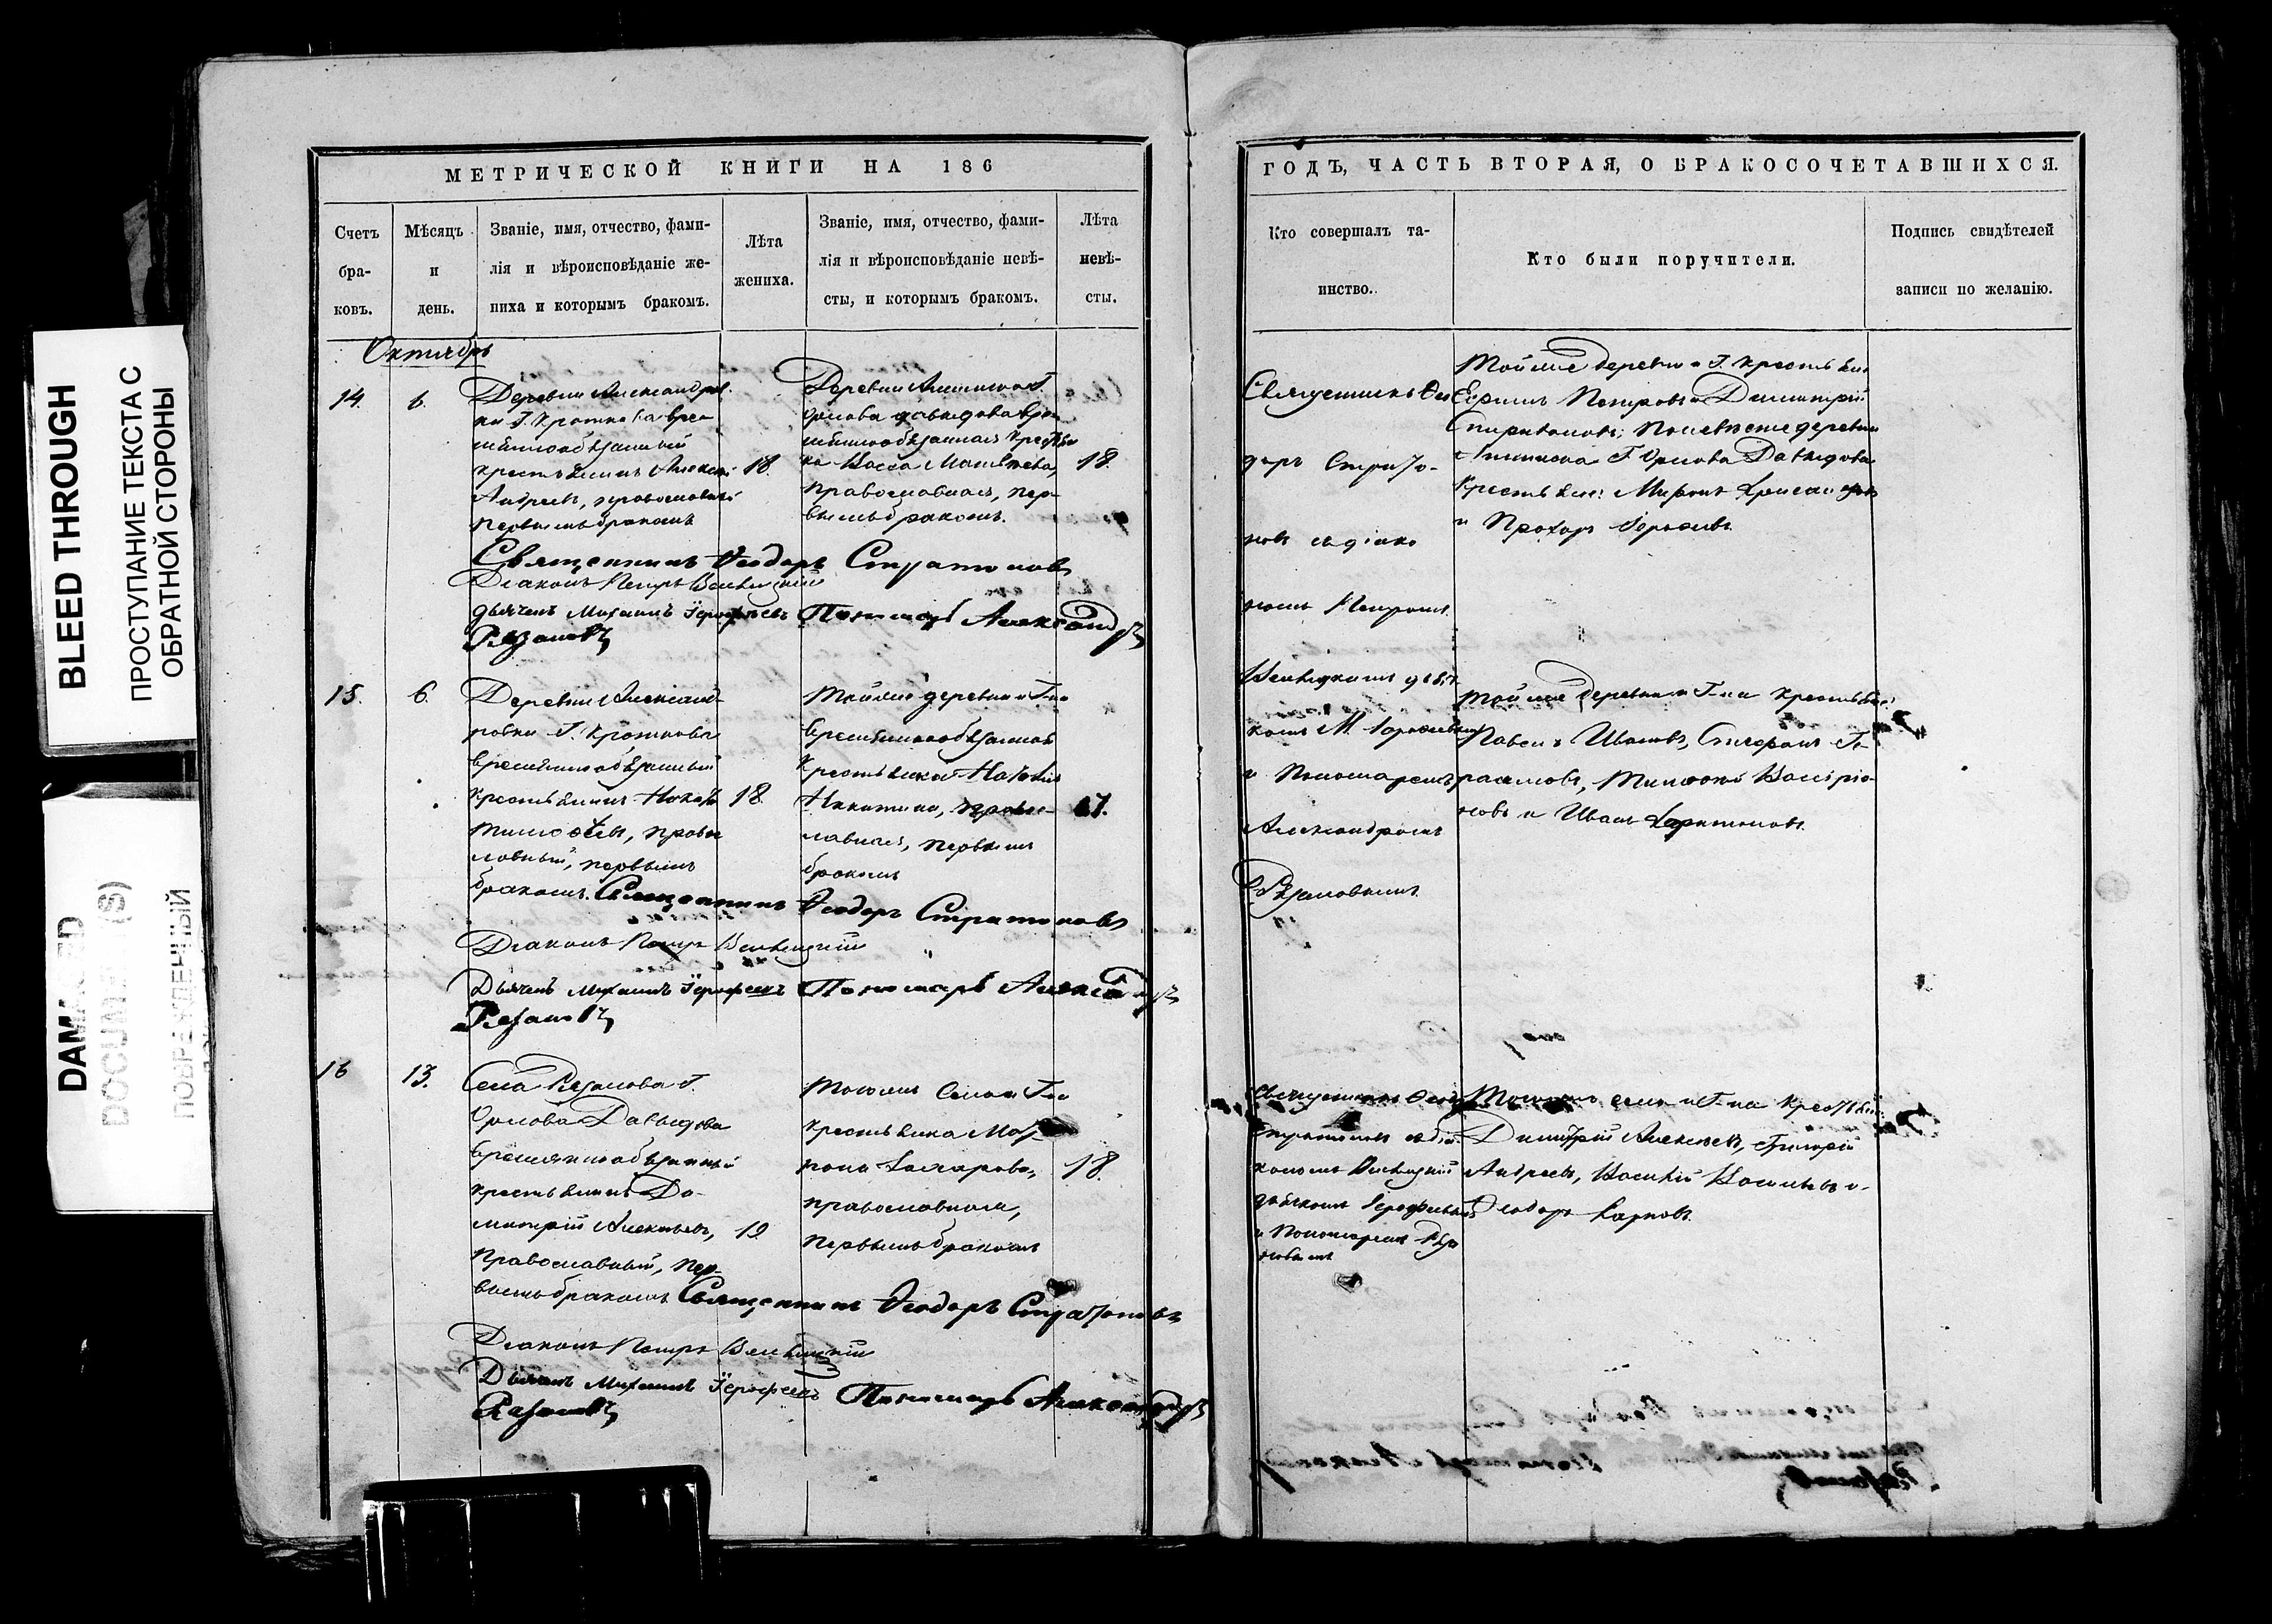 BLEED THROUGH
ПРОСТУПАНИЕ ТЕКСТА С
ОБРАТНОЙ СТОРОНЫ
DAMAGED
DOCUMENT (S)
ПОВРЕЖДЕННЫЙ
МЕТРИЧЕСКОЙ КНИГИ НА 186
Счетъ
бра-
ковъ.
Мѣсяцъ
и
день.
Званіе, имя, отчество, фами-
лія и вѣроисповѣданіе же-
ниха и которымъ бракомъ.
Лѣта
жениха.
Званіе, имя, отчество, фами-
лія и вѣроисповѣданіе невѣ-
сты, и которымъ бракомъ.
Лѣта
невѣ-
сты.
Октябрь
14.
6.
Деревни Александров-
ки Г. Кроткова вре-
меннообязанный
крестьянинъ Алексѣй
Андреевъ, православный
первымъ бракомъ
18.
Деревни Г.
Орлова Давыдова вре-
меннообязанная крестьян-
ка Васса Матвѣева,
православная, пер-
вымъ бракомъ.
18.
Священникъ Ѳеодоръ Стратоновъ
Діаконъ Петръ
Дьячекъ Михаилъ Іерофеевъ Пономарь Александръ
Рѣзановъ
15.
6.
Деревни Александ-
ровки Г. Кроткова
временнообязанный
крестьянинъ
Тимоѳеевъ, право-
славный, первымъ
бракомъ.
18.
Тойже деревни и Г-на
временнообязанная
крестьянка Наталья
Никитина, правос-
лавная, первымъ
бракомъ
17.
Священникъ Ѳеодоръ Стратоновъ
Діаконъ Петръ
Дьячекъ Михаилъ Іерофеевъ Пономарь Александръ
Рѣзановъ
16
13.
Села Рѣзанова Г.
Орлова Давыдова
временнообязанный
крестьянинъ Ди-
митрій Алексѣевъ,
Православный, пер-
вымъ бракомъ
19.
Тогоже Села и Г-на
крестьянка Мат-
рона Захарова,
православная,
первымъ бракомъ
18.
Священникъ Ѳеодоръ Стратоновъ
Діаконъ Петръ
Дьячекъ Михаилъ Іерофеевъ Пономарь Александръ
Рѣзановъ
ГОДЪ, ЧАСТЬ ВТОРАЯ, О БРАКОСОЧЕТАВШИХСЯ.
Кто совершалъ та-
инство.
Кто были поручители.
Подпись свидѣтелей
записи по желанію.
Священникъ Ѳео
доръ Страто-
новъ съ діако
номъ Петромъ
М. Іерофеевымъ
и Пономаремъ
Александромъ
Рѣзановымъ
Тойже деревни и Г. крестьяне
Ефимъ Петровъ и Димитрій
Спиридоновъ; По невѣсте деревни
Г. Орлова Давыдова
крестьяне: Миронъ
и Прохоръ
Тойже деревни и Г-на крестьяне:
Павелъ Ивановъ, Стефанъ Ге-
расимовъ, Тимофей
новъ и Иванъ Харитоновъ.
Священникъ Ѳеод
Стратоновъ съ діа
кономъ
дьячкомъ Іерофеевымъ
и Пономаремъ Рѣза
новымъ
Тогоже села и Г-на крестьяне:
Димитрій Алексѣевъ, Григорій
Андреевъ, Василій Васильевъ и
Ѳеодоръ Карповъ.